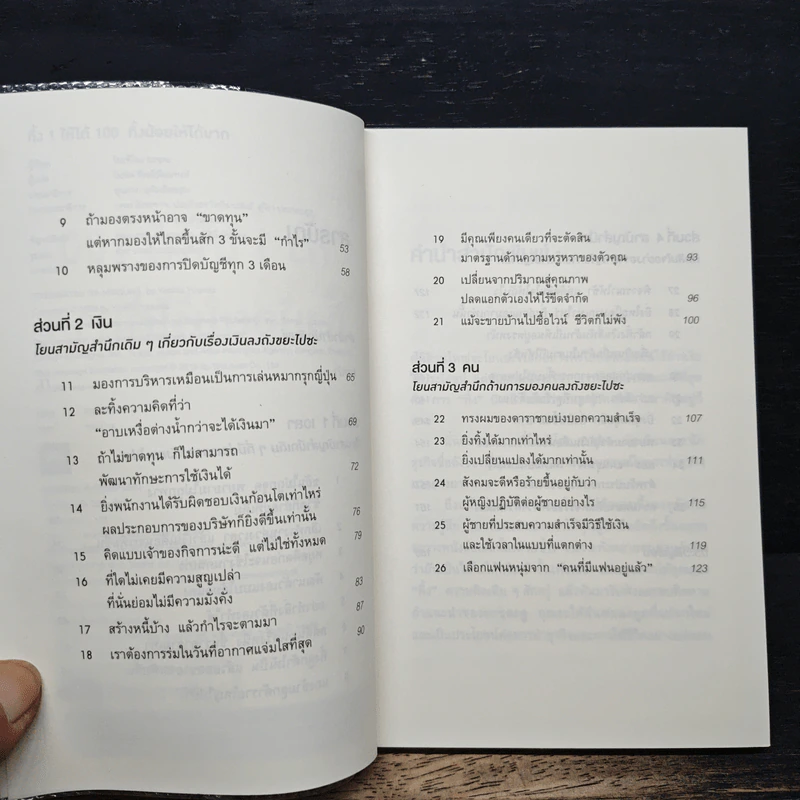 9 ถ้ามองตรงหน้าอาจ “ขาดทุน”
แต่หากมองให้ไกลขึ้นสัก 3 ขั้นจะมี “กำไร” 53
10 หลุมพรางของการปิดบัญชีทุก 3 เดือน 58
ส่วนที่ 2 เงิน
โยนสามัญสำนึกเดิม ๆ เกี่ยวกับเรื่องเงินลงถังขยะไปซะ
11 มองการบริหารเหมือนเป็นการเล่นหมากรุกญี่ปุ่น 65
12 ละทิ้งความคิดที่ว่า
“อาบเหงื่อต่างน้ำกว่าจะได้เงินมา” 69
13 ถ้าไม่ขาดทุน ก็ไม่สามารถ
พัฒนาทักษะการใช้เงินได้ 72
14 ยิ่งพนักงานได้รับผิดชอบเงินก้อนโตเท่าไหร่
ผลประกอบการของบริษัทก็ยิ่งดีขึ้นเท่านั้น 76
15 คิดแบบเจ้าของกิจการน่ะดี แต่ไม่ใช่ทั้งหมด 79
16 ที่ใดไม่เคยมีความสูญเปล่า
ที่นั่นย่อมไม่มีความมั่งคั่ง 83
17 สร้างหนี้บ้าง แล้วกำไรจะตามมา 87
18 เราต้องการร่มในวันที่อากาศแจ่มใสที่สุด 90
19 มีคุณเพียงคนเดียวที่จะตัดสิน
มาตรฐานด้านความหรูหราของตัวคุณ 93
20 เปลี่ยนจากปริมาณสู่คุณภาพ
ปลดแอกตัวเองให้ไร้ขีดจำกัด 96
21 แม้จะขายบ้านไปซื้อไวน์ ชีวิตก็ไม่พัง 100
ส่วนที่ 3 คน
โยนสามัญสำนึกด้านการมองคนลงถังขยะไปซะ
22 ทรงผมของดาราชายบ่งบอกความสำเร็จ 107
23 ยิ่งทิ้งได้มากเท่าไหร่
ยิ่งเปลี่ยนแปลงได้มากเท่านั้น 111
24 สังคมจะดีหรือร้ายขึ้นอยู่กับว่า
ผู้หญิงปฏิบัติต่อผู้ชายอย่างไร 115
25 ผู้ชายที่ประสบความสำเร็จมีวิธีใช้เงิน
และใช้เวลาในแบบที่แตกต่าง 119
26 เลือกแฟนหนุ่มจาก “คนที่มีแฟนอยู่แล้ว” 123